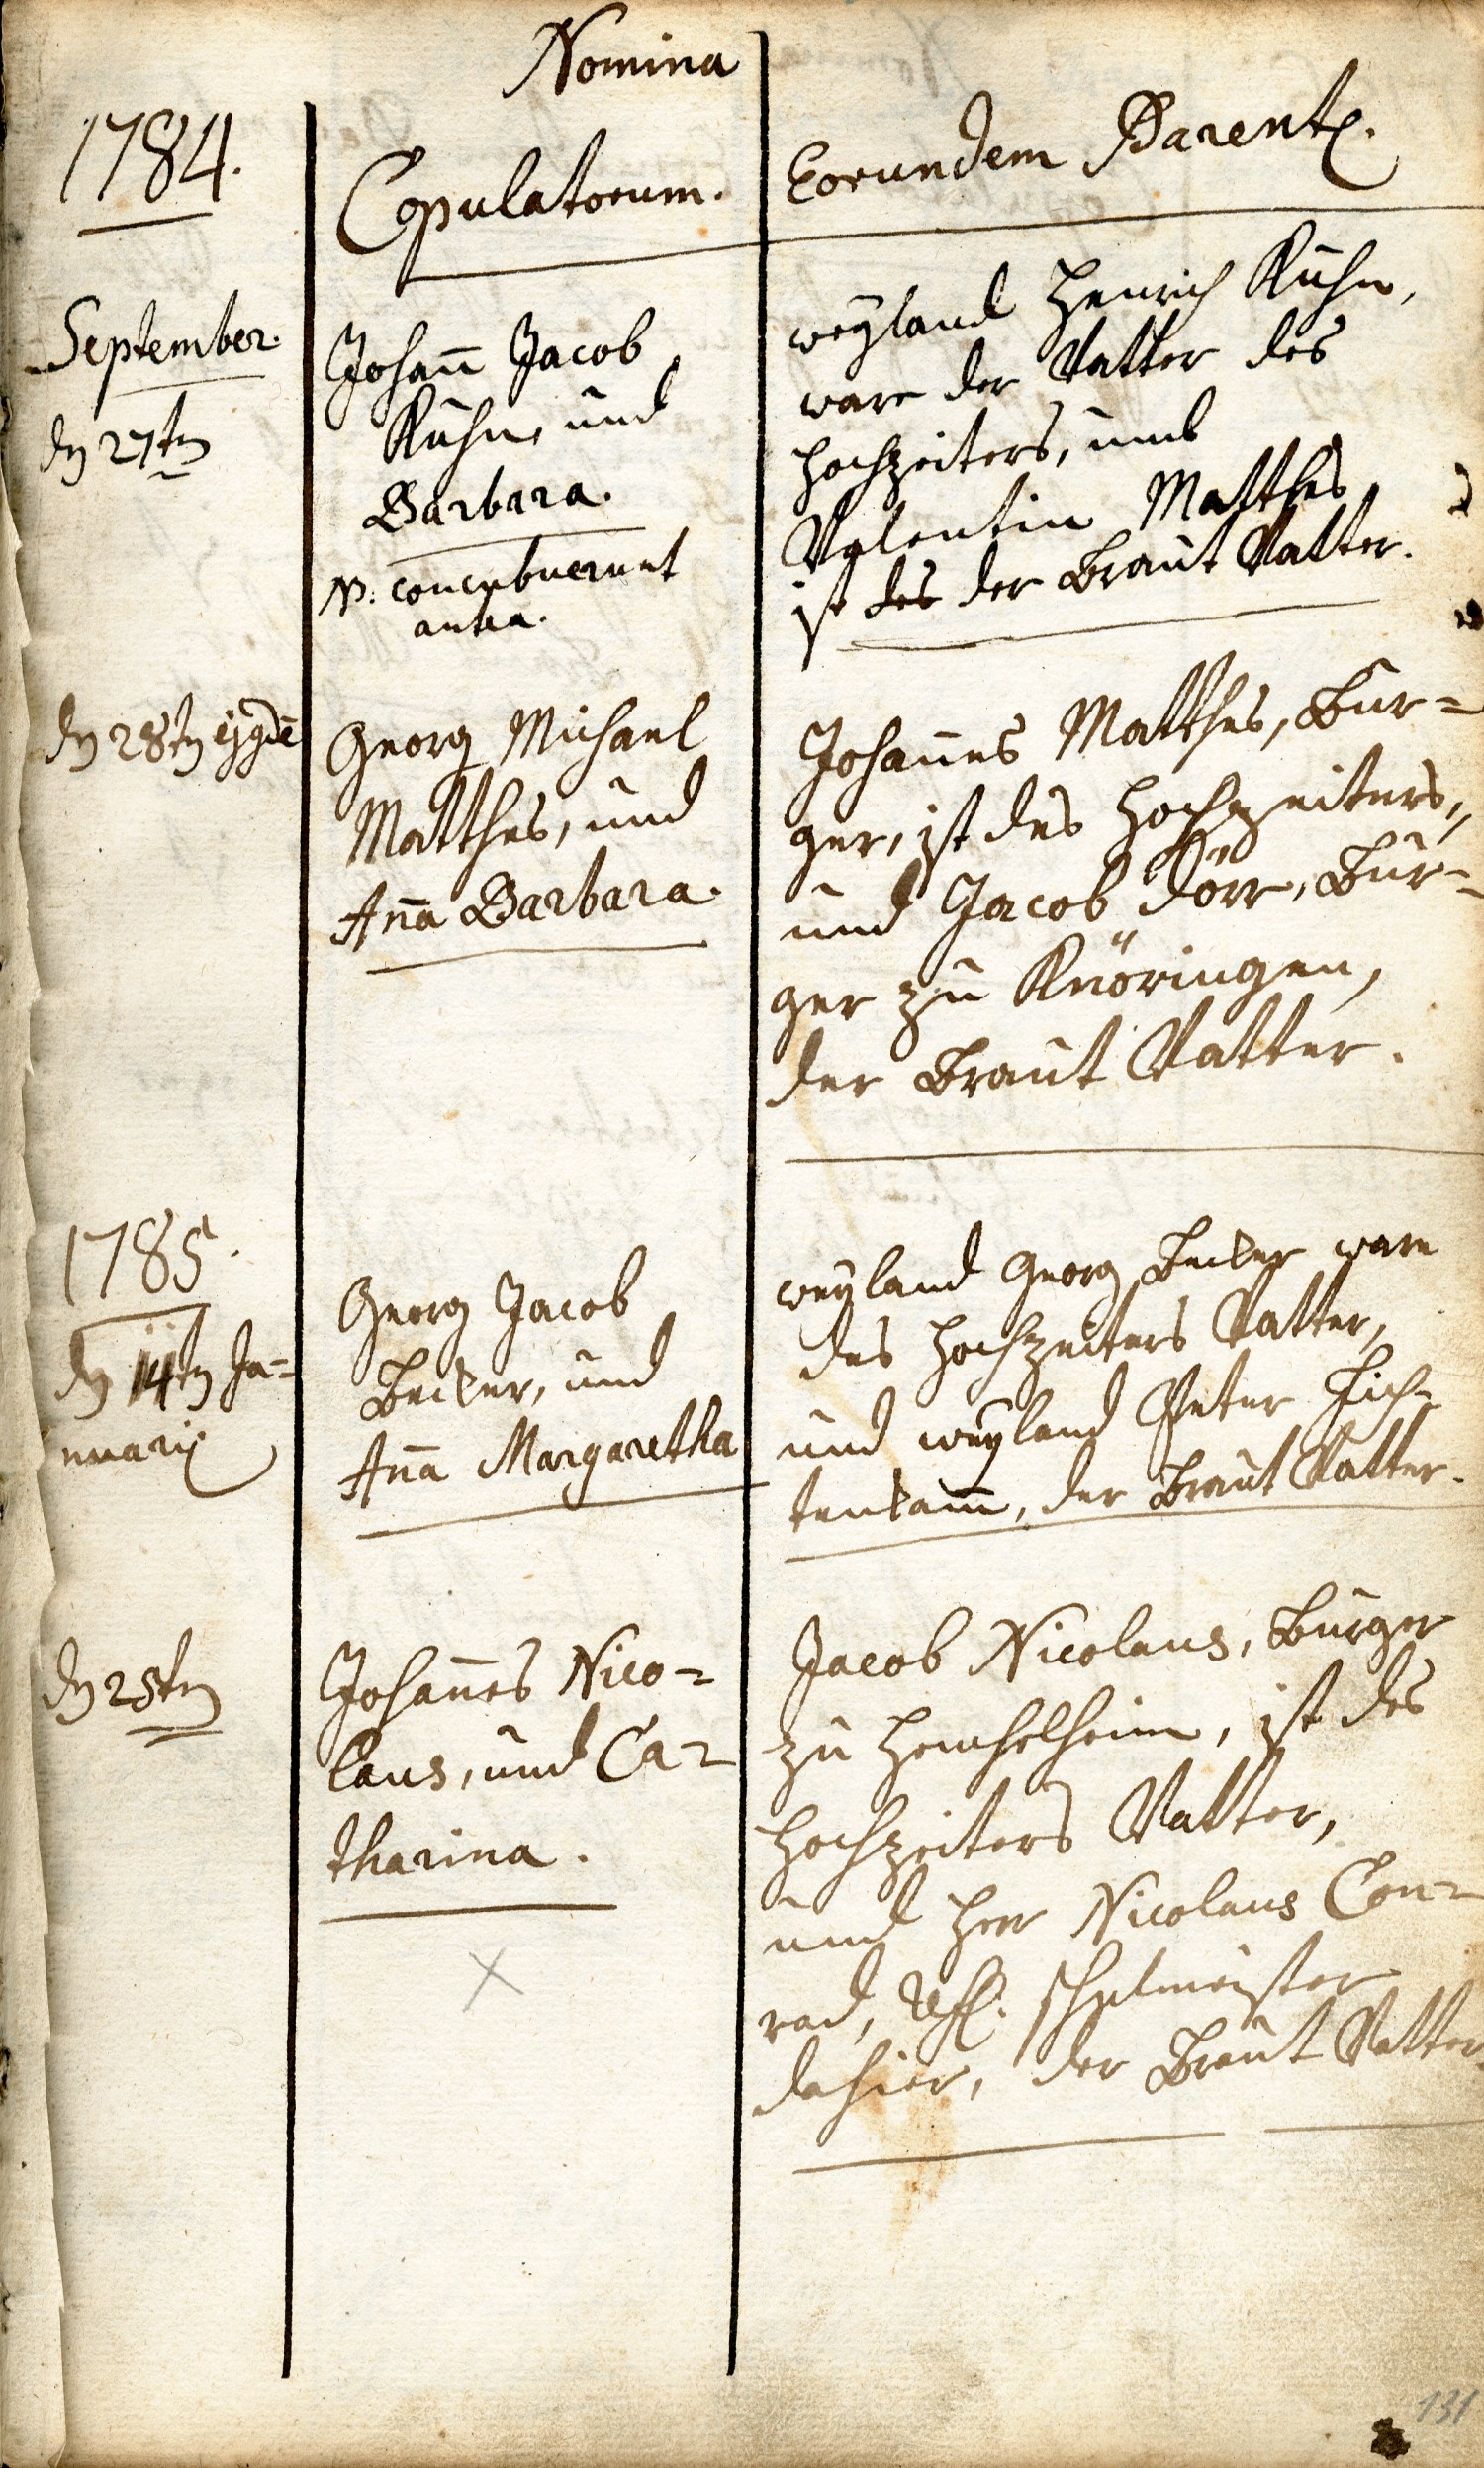 Nomina
1784.
Copulatorum.
Eorundem Parent.
September.
dn 27tn
Johan̅ Jacob
Kuhn, und
Barbara.
NB: concubuerunt
antea.
weyland Henrich Kuhn,
ware der Vatter des
Hochzeiters, und
Valentin Matthes
ist des der Braut Vatter.
dn 28tn ejqde̅
Georg Michael
Matthes, und
An̅a Barbara.
Johan̅es Matthes, Bur=
ger, ist des Hochzeiters,
und Jacob Dörr, Bur=
ger zu Knöringen,
der Braut Vatter.
1785.
dn 11tn Ja=
nuarij
Georg Jacob
Becker, und
An̅a Margaretha
weyland Georg Becker ware
des Hochzeiters Vatter,
und weyland Peter Fich=
tenkam̅, der Braut Vatter.
dn 25tn
Johan̅es Nico=
laus, und Ca=
tharina.
Jacob Nicolaus, Burger
zu Heuchelheim, ist des
Hochzeiters Vatter,
und Herr Nicolaus Con=
rad, Ref. Schulmeister
dahier, der Braut Vatter
131